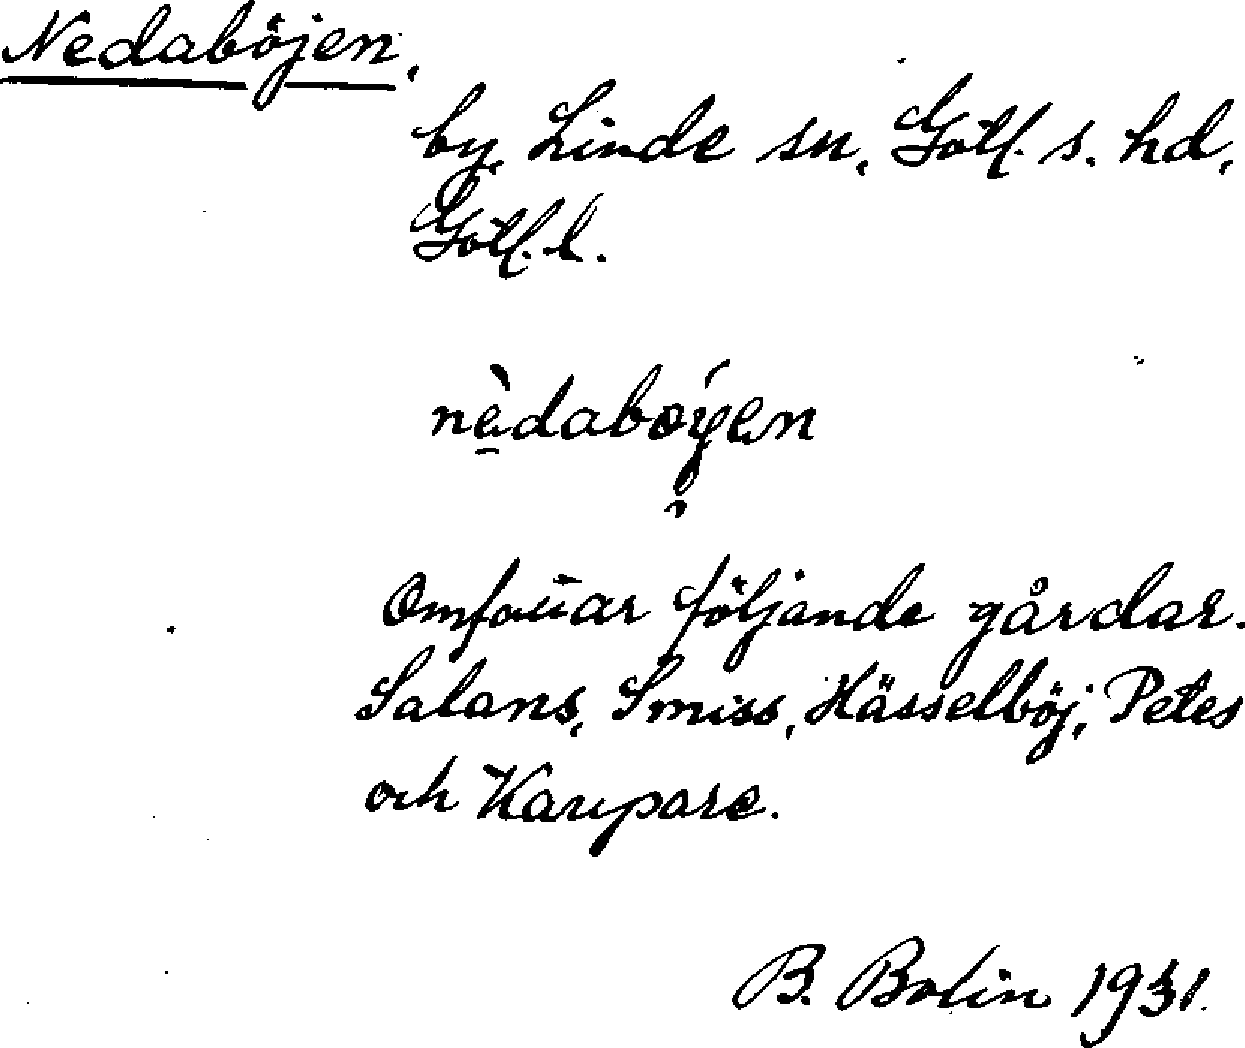 Nedaböjen,
by, Linde sn, Gotl. s. hd,
Gotl. l.
nèdabǿyen
Omfattar följande gårdar.
Salans, Smiss, Hässelböj, Petes
och Kaupare.
B. Bolin 1931.